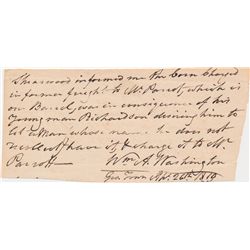 Sherwood informed me the Corn Charged
in former freight to Mr Parrott which is
one Barrel, was in consequence of his
Young man Richardson desiring him to
let a man whose name he does not
recollect have it & charge it to Mr
Parrott
Wm A. Washington
Geo Town 20th 1819